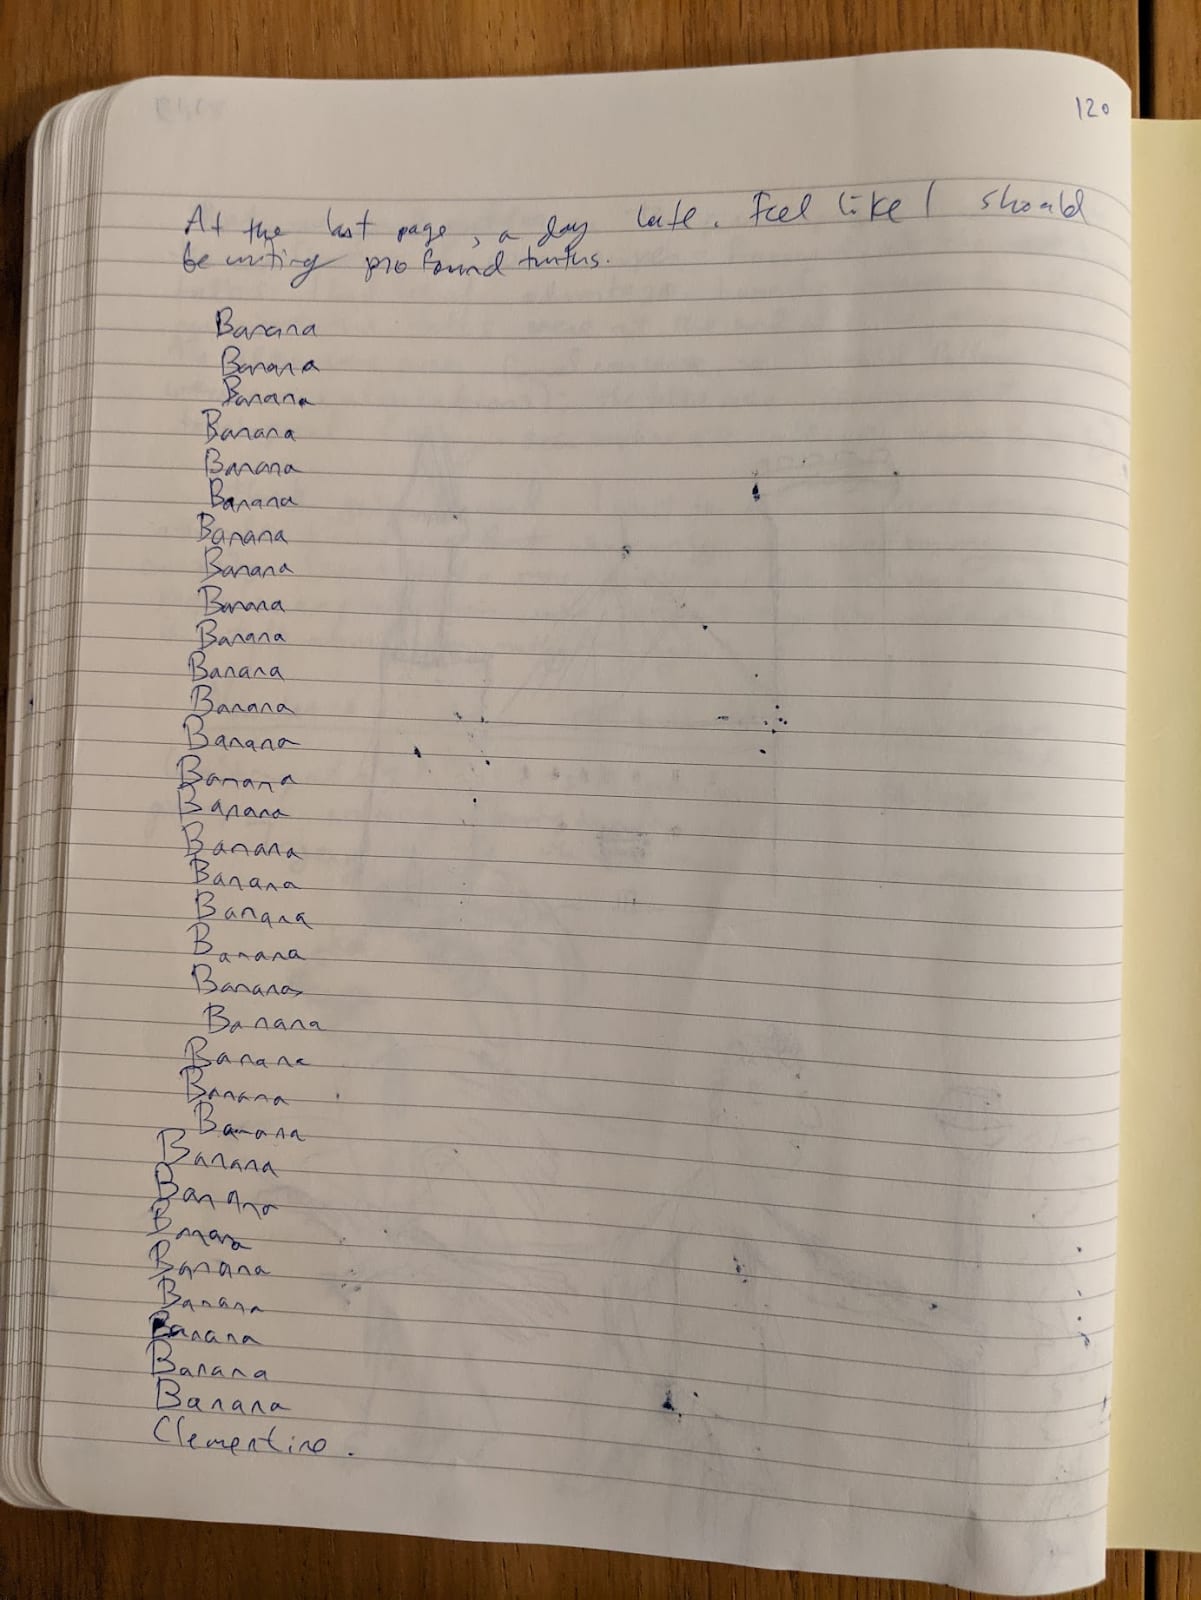 120
At the last page, a day late. Feel like I should
be writing profound truths.
Banana
Banana
Banana
Banana
Banana
Banana
Banana
Banana
Banana
Banana
Banana
Banana
Banana
Banana
Banana
Banana
Banana
Banana
Banana
Banana
Banana
Banana
Banana
Banana
Banana
Banana
Banana
Banana
Banana
Banana
Banana
Banana
Clementine.